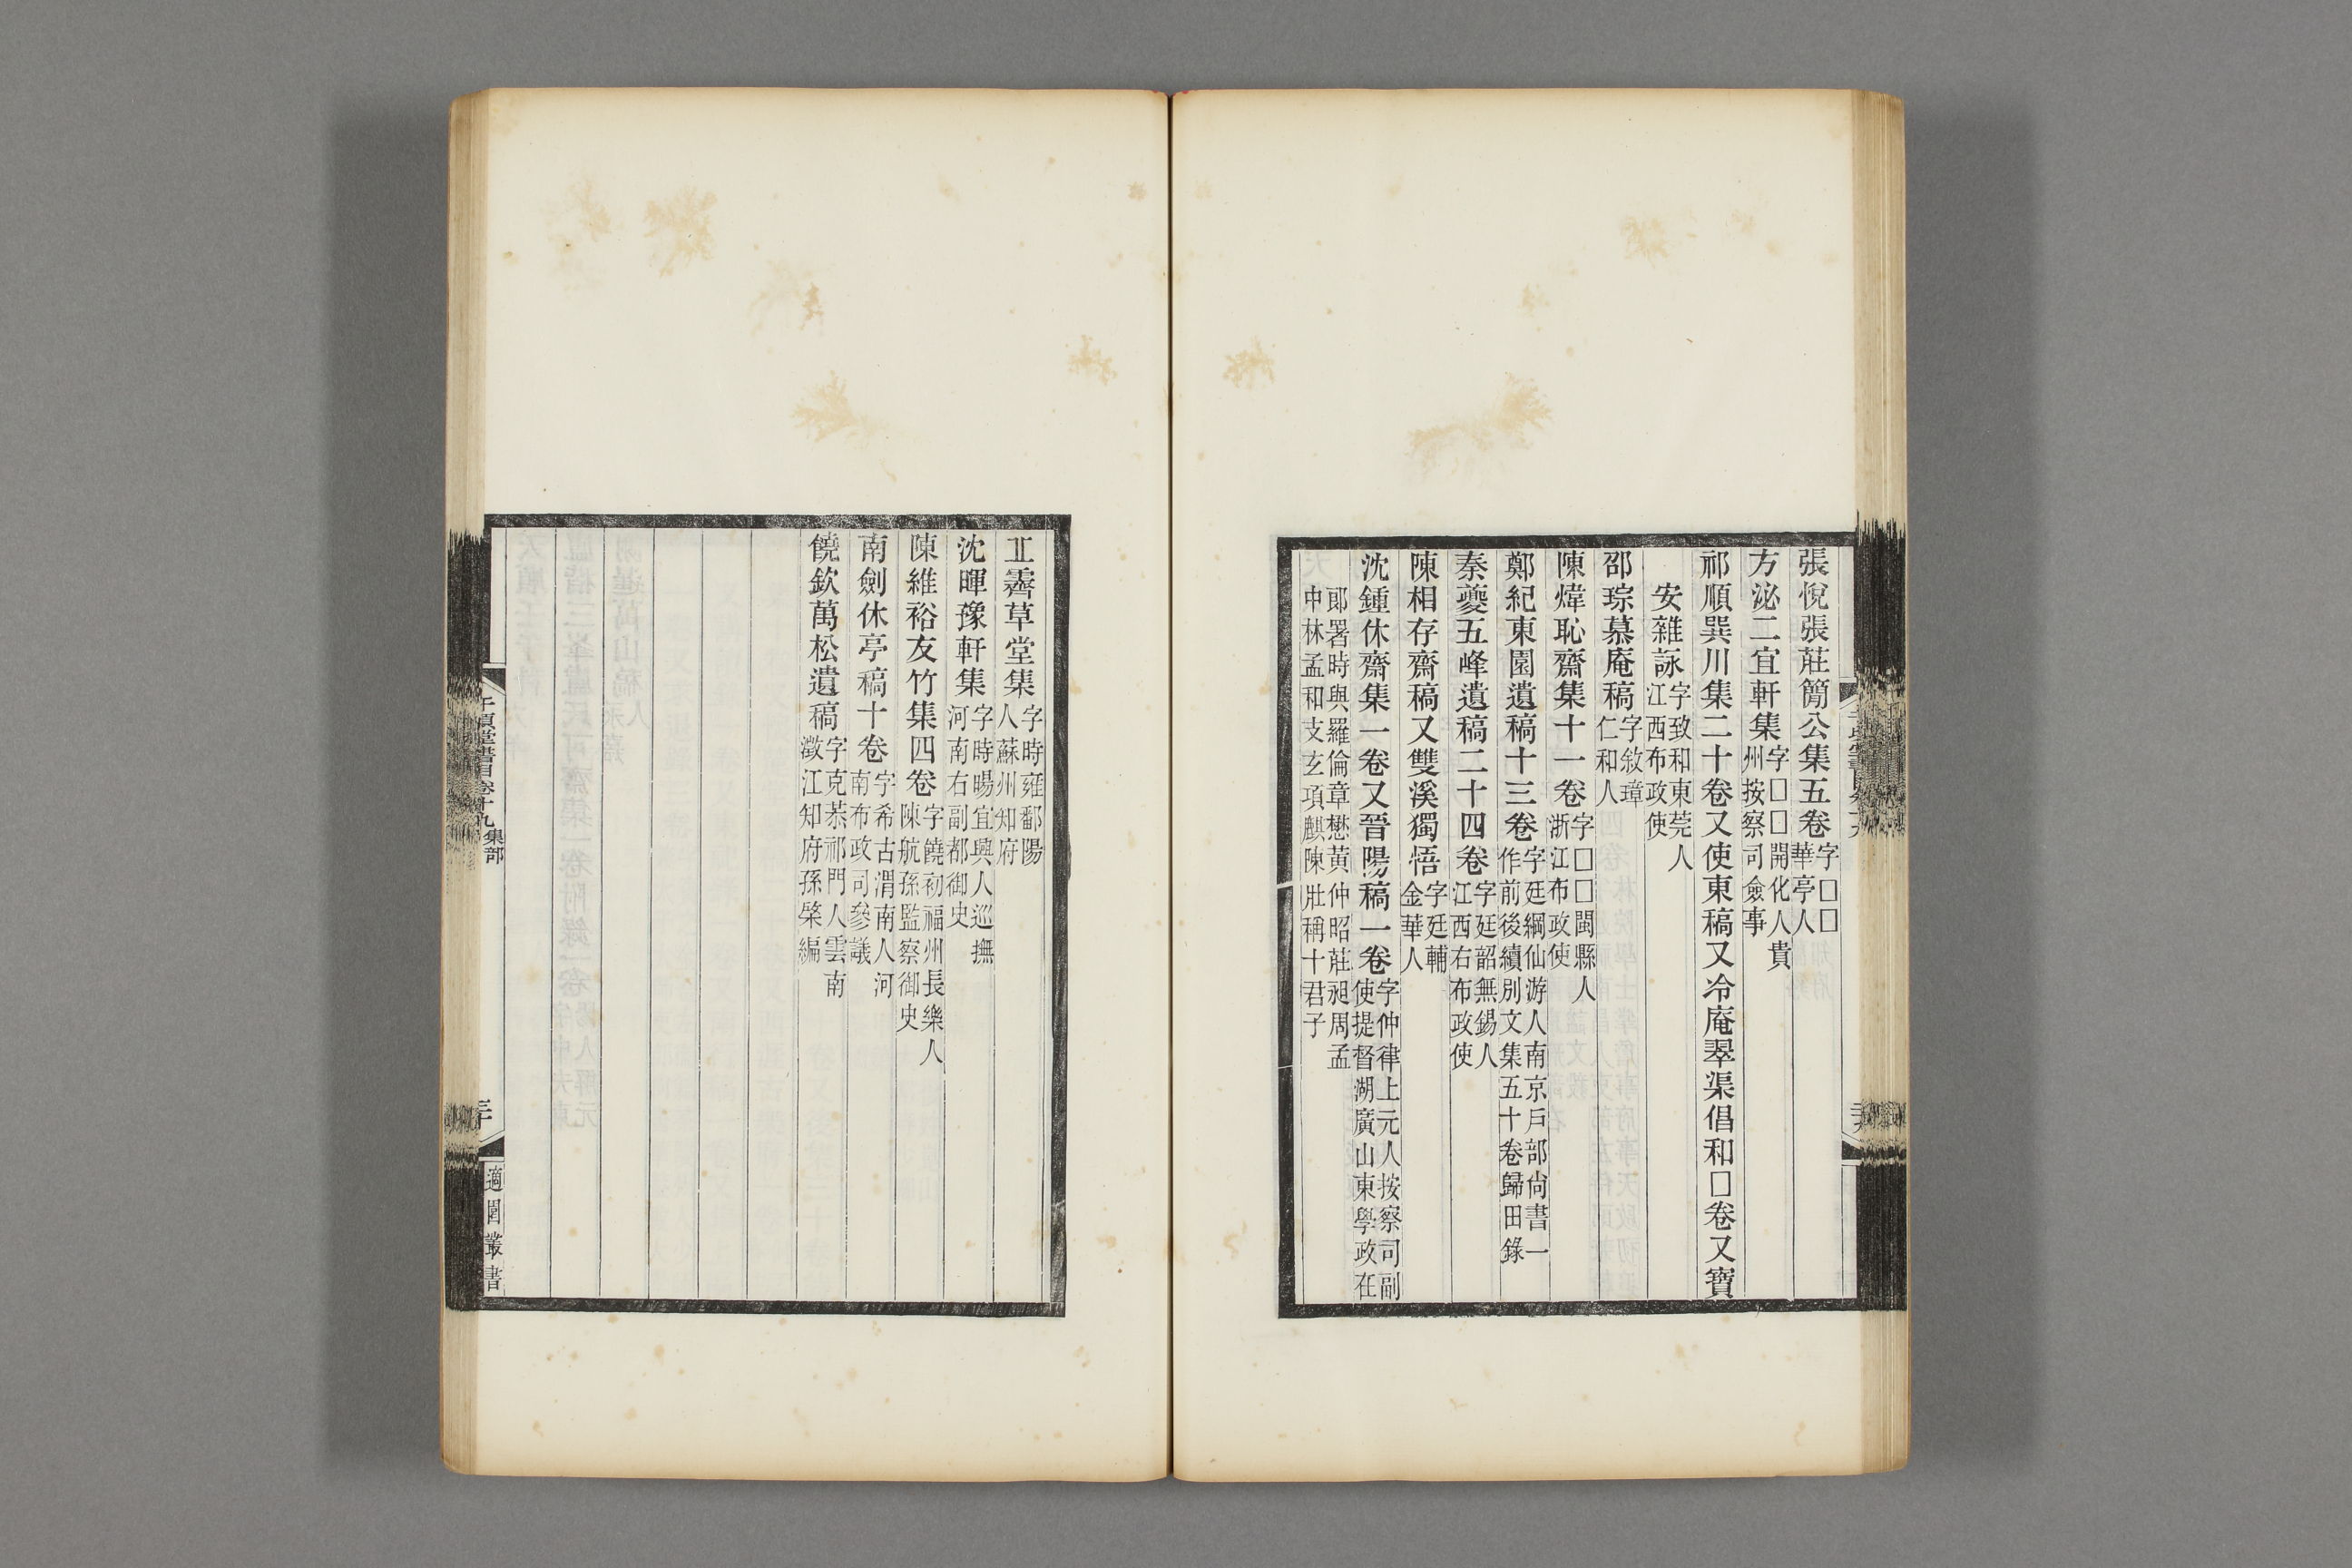 張悅張莊簡公集五卷字□□華亭人
方泌二宜軒集字□□開化人貴州按察司僉事
祁順巽川集二十卷又使東稿又冷庵翠渠倡和□卷又寶
安雜詠字致和東莞人江西布政使
邵琮慕庵稿字敘璋仁和人
陳煒恥齋集十一卷字□□閩縣人浙江布政使
鄭紀東園遺稿十三卷字廷綱仙游人南京戶部尙書一作前後續別文集五十卷歸田錄
秦夔五峰遺稿二十四卷字廷韶無錫人江西右布政使
陳相存齋稿又雙溪獨悟字廷輔金華人
沈鍾休齋集一卷又晉陽稿一卷字仲律上元人按察司副使提督湖廣山東學政在
郎署時與羅倫章懋黃仲昭莊昶周孟中林孟和支玄項麒陳壯稱十君子
丘霽草堂集字時雍鄱陽人蘇州知府
沈暉豫軒集字時暘宜興人巡撫河南右副都御史
陳維裕友竹集四卷字饒初福州長樂人陳航孫監察御史
南劍休亭稿十卷字希古渭南人河南布政司參議
饒欽萬松遺稿字克恭祁門人雲南澂江知府孫棨編
千頃堂書目卷十九 集部
三十
適園叢書